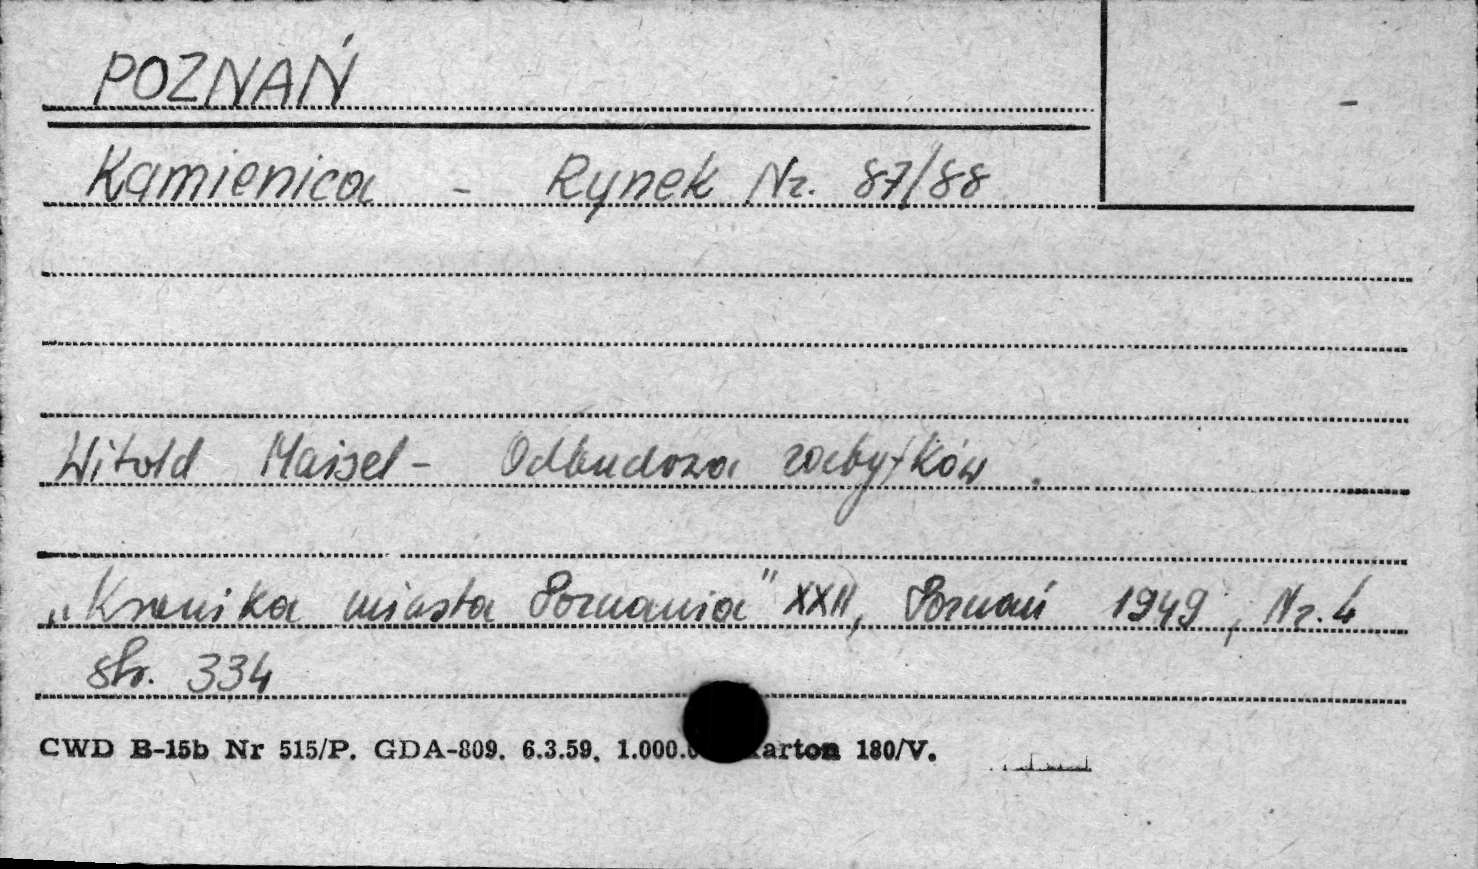 POZNAŃ
-
Kamienica - Rynek Nr. 87/88
Witold Maisel - Odbudowa zabytków.
„Kronika miasta Poznania" XXII, Poznań 1949, Nr. 4
str. 334
CWD B-15b Nr 515/P. GDA-809. 6.3.59. 180/V.